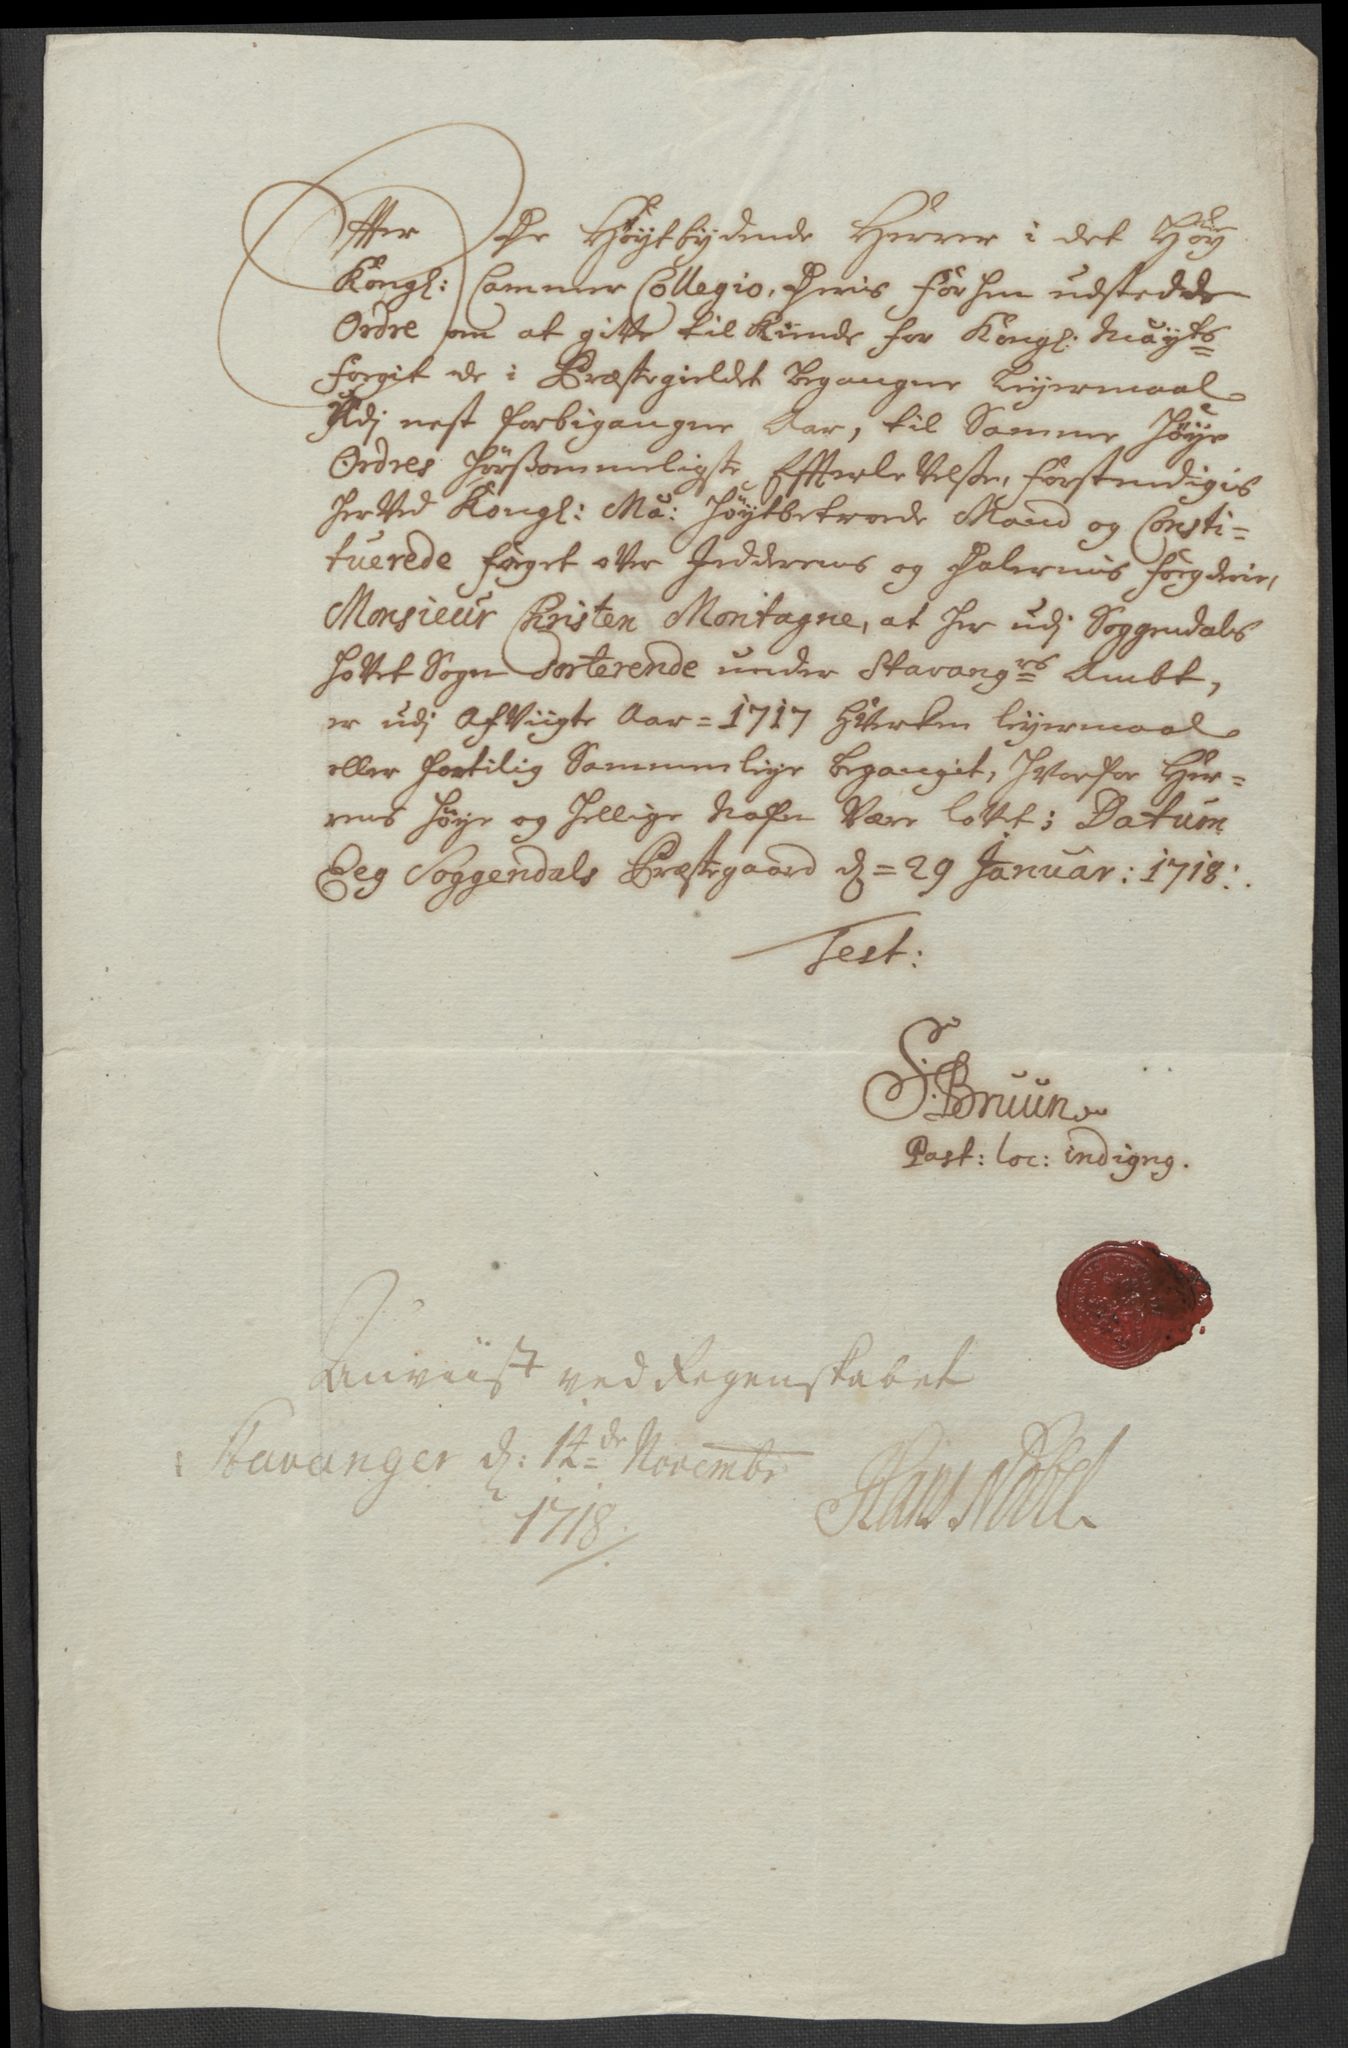 Effter De Høytbydende Herrer i det Høy
Kongl: Cammer Collegio, Deris før hen udstædde
Ordre om at gifve til Kiende for Kongl: Mayts
fogit de i Præstegieldet begangne Leyermaal
Udj nest forbigangne Aar, til Samme høye
Ordres hørsommeligste Effterlevelse, forstendigis
her Ved Kongl: Ma: høytbetroede Mand og Consti-
tuerede foget over Jedderens og Dalernis fogderie,
Monsieur Christen Montagne, at her udj Soggendals
hovet Sogn Sorterende under Stavangrs Ambt,
er udj Afvigte Aar = 1717 hverken leyermaal
eller fortilig Sammenleye begangit, hvorfor Her-
rens høye og hellige Nafn Være lovet; Datum
Eeg Soggendals Præstegaard d = 29 Januar: 1718:.
Test:
S: Bruun
Past: loc: indigng.
Anviist ved Regenskabet
i Stavanger d: 14de Novembr
1718
Hans Nobel